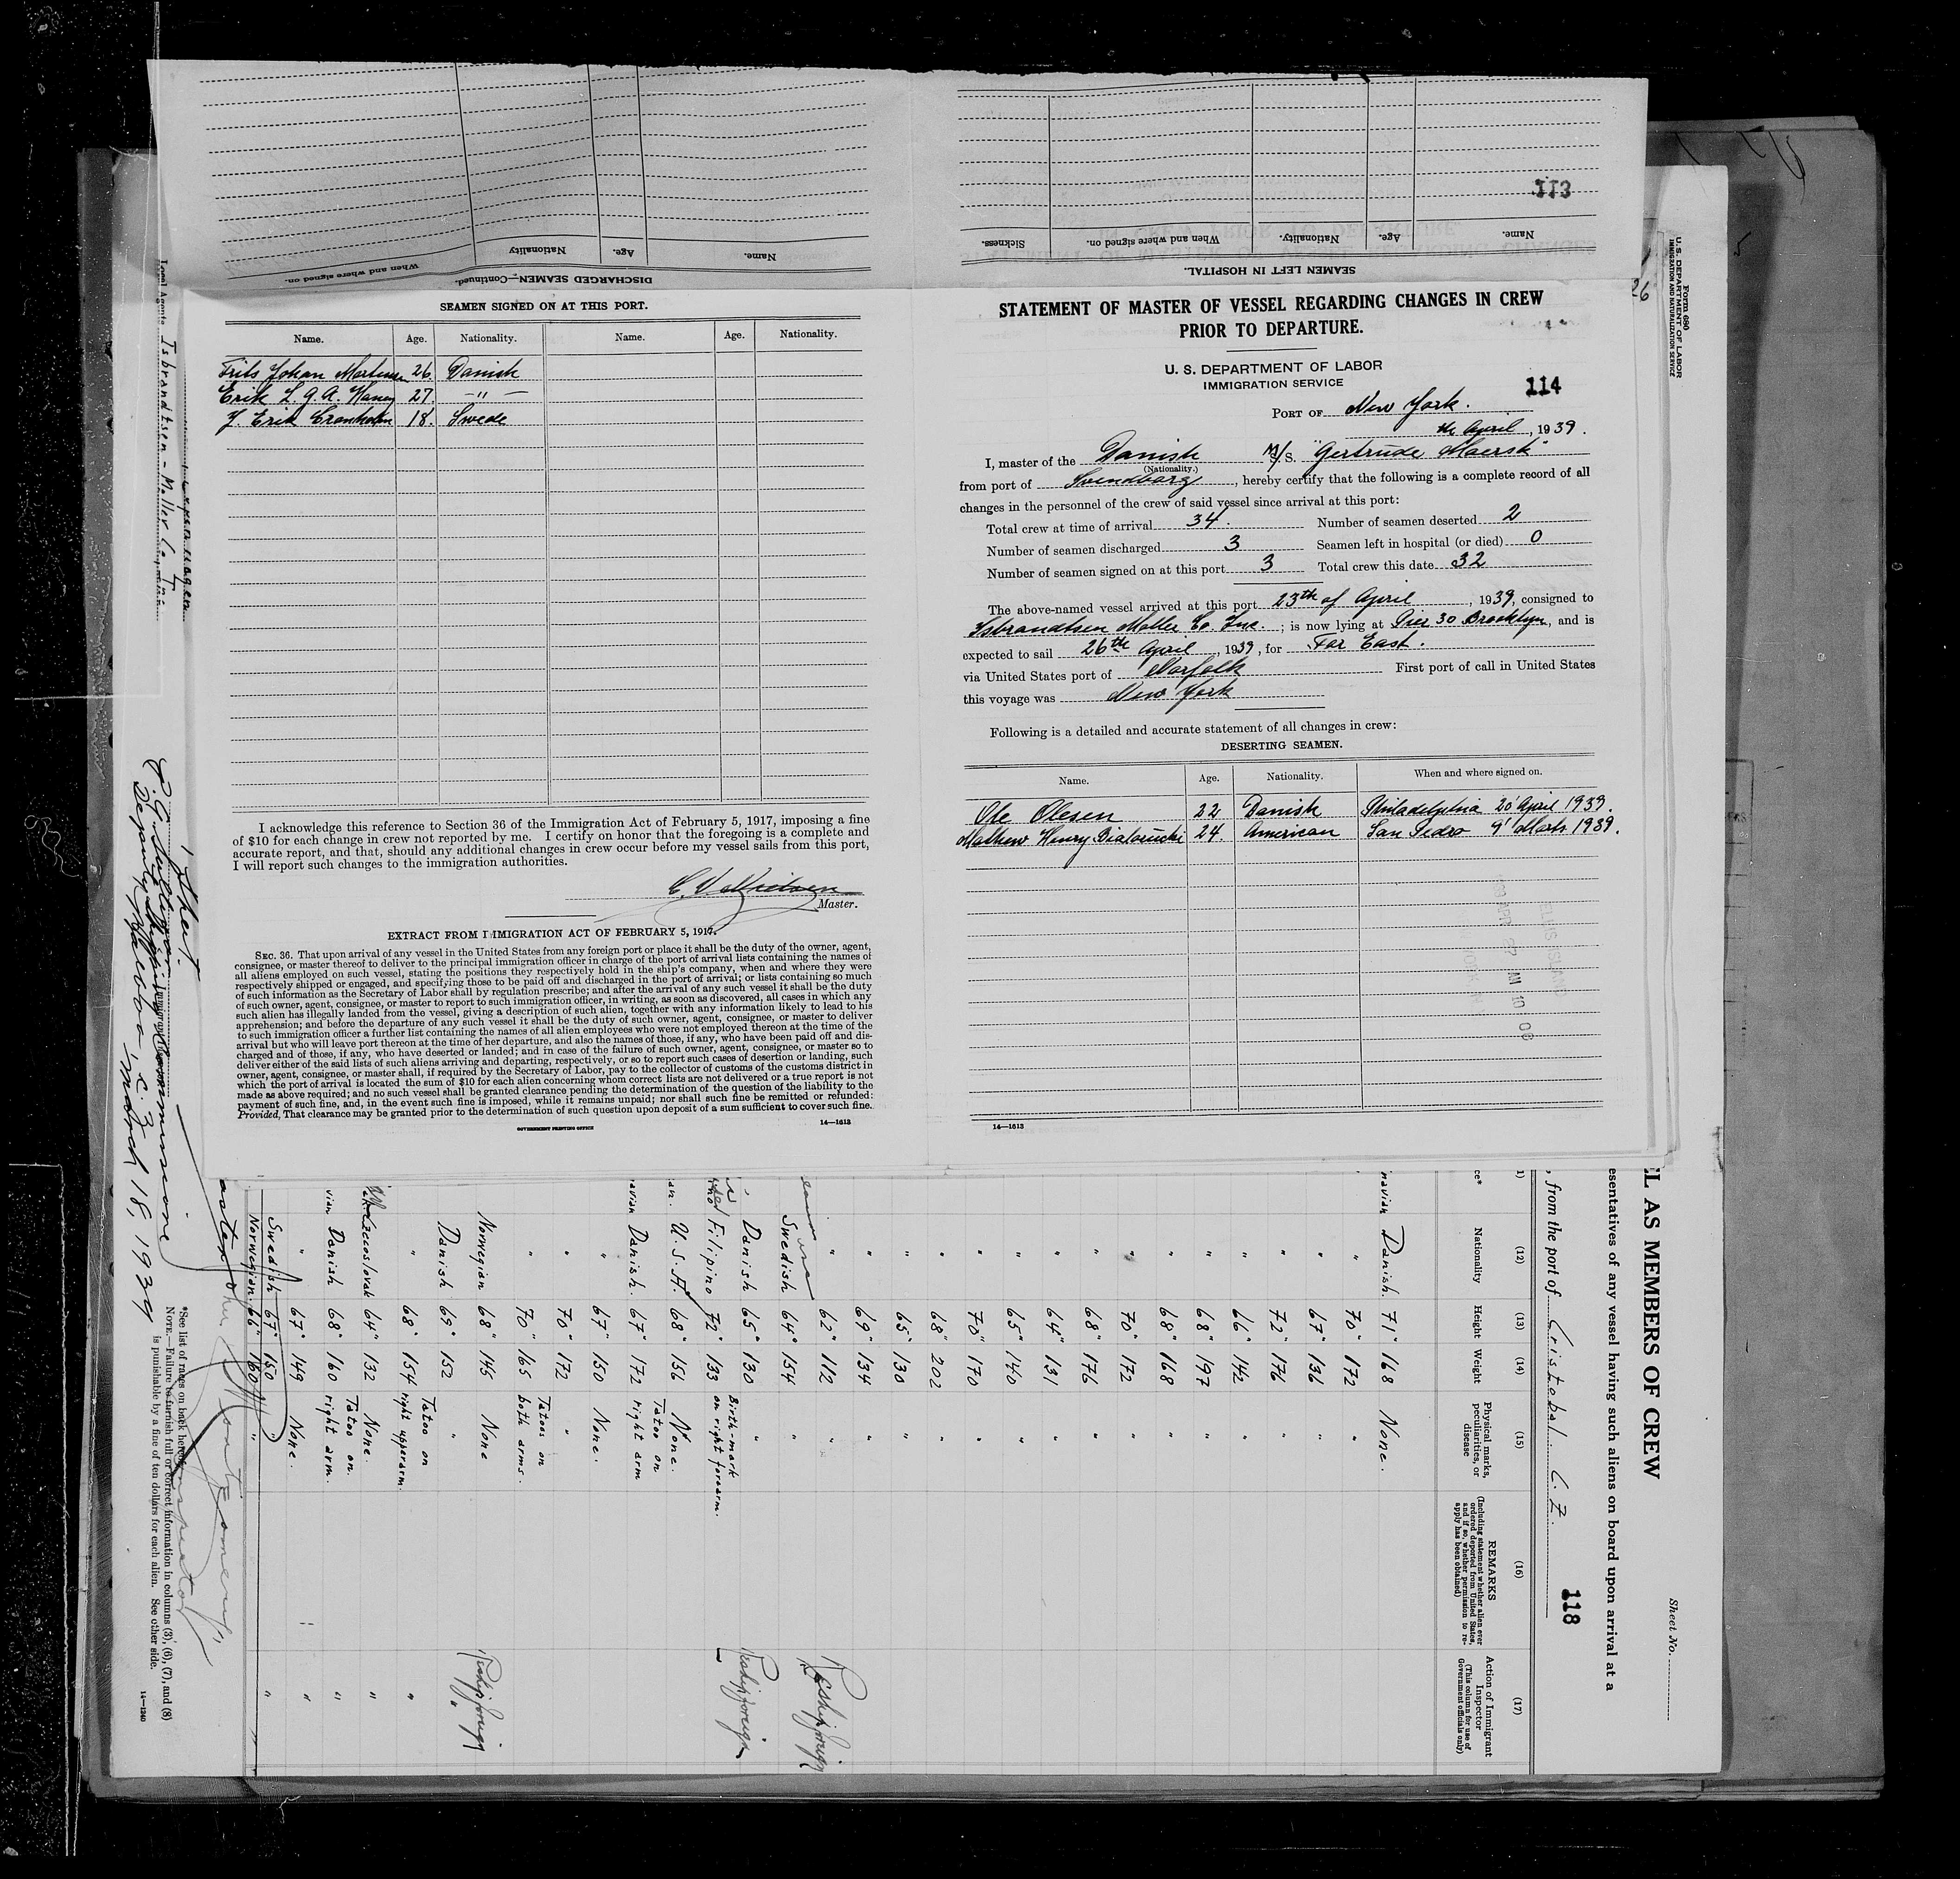 When and where signed on.
Nationality
Age.
Name.
DISCHARGED SEAMEN—Continued.
113
Sickness.
When and where signed on.
Nationality.
Age.
Name.
SEAMEN LEFT IN HOSPITAL.
SEAMEN SIGNED ON AT THIS PORT.
Name. Age. Nationality. Name. Age. Nationality.
Frits Johan Mortensen 26. Danish
Erik L. G. A. 27 —"—
J. Erik Cronholm 18. Swede
I acknowledge this reference to Section 36 of the Immigration Act of February 5, 1917, imposing a fine
of $10 for each change in crew not reported by me. I certify on honor that the foregoing is a complete and
accurate report, and that, should any additional changes in crew occur before my vessel sails from this port,
I will report such changes to the immigration authorities.
Master.
EXTRACT FROM IMMIGRATION ACT OF FEBRUARY 5, 1917.
SEC. 36. That upon arrival of any vessel in the United States from any foreign port or place it shall be the duty of the owner, agent,
consignee, or master thereof to deliver to the principal immigration officer in charge of the port of arrival lists containing the names of
all aliens employed on such vessel, stating the positions they respectively hold in the ship's company, when and where they were
respectively shipped or engaged, and specifying those to be paid off and discharged in the port of arrival; or lists containing so much
of such information as the Secretary of Labor shall by regulation prescribe; and after the arrival of any such vessel it shall be the duty
of such owner, agent, consignee, or master to report to such immigration officer, in writing, as soon as discovered, all cases in which any
such alien has illegally landed from the vessel, giving a description of such alien, together with any information likely to lead to his
apprehension; and before the departure of any such vessel it shall be the duty of such owner, agent, consignee, or master to deliver
to such immigration officer a further list containing the names of all alien employees who were not employed thereon at the time of the
arrival but who will leave port thereon at the time of her departure, and also the names of those, if any, who have been paid off and dis-
charged and of those, if any, who have deserted or landed; and in case of the failure of such owner, agent, consignee, or master so to
deliver either of the said lists of such aliens arriving and departing, respectively, or so to report such cases of desertion or landing, such
owner, agent, consignee, or master shall, if required by the Secretary of Labor, pay to the collector of customs of the customs district in
which the port of arrival is located the sum of $10 for each alien concerning whom correct lists are not delivered or a true report is not
made as above required; and no such vessel shall be granted clearance pending the determination of the question of the liability to the
payment of such fine, and, in the event such fine is imposed, while it remains unpaid; nor shall such fine be remitted or refunded:
Provided, That clearance may be granted prior to the determination of such question upon deposit of a sum sufficient to cover such fine.
GOVERNMENT PRINTING OFFICE 14—1613
STATEMENT OF MASTER OF VESSEL REGARDING CHANGES IN CREW
PRIOR TO DEPARTURE.
U. S. DEPARTMENT OF LABOR
IMMIGRATION SERVICE
114
PORT OF New York.
th April, 1939.
I, master of the Danish M/S. "Gertrude Maersk"
(Nationality.)
from port of Svendborg, hereby certify that the following is a complete record of all
changes in the personnel of the crew of said vessel since arrival at this port:
Total crew at time of arrival 34. Number of seamen deserted 2
Number of seamen discharged 3 Seamen left in hospital (or died) 0
Number of seamen signed on at this port 3 Total crew this date 32
The above-named vessel arrived at this port 23th of April, 1939, consigned to
Isbrandtsen Moller Co. Inc.; is now lying at Pier 30 Brooklyn, and is
expected to sail 26th April, 1939, for Far East.
via United States port of Norfolk First port of call in United States
this voyage was New York
Following is a detailed and accurate statement of all changes in crew:
DESERTING SEAMEN.
Name. Age. Nationality. When and where signed on.
Ole Olesen 22 Danish Philadelphia 20' April 1939.
Mathew Henry 24. American San Pedro 9' Marts 1939.
14—1613
ELLIS ISLAND
APR 27 AM 10 06
26
Form 680
U. S. DEPARTMENT OF LABOR
IMMIGRATION AND NATURALIZATION SERVICE
Sheet No.
L AS MEMBERS OF CREW
esentatives of any vessel having such aliens on board upon arrival at a
, from the port of Cristobal C. Z.
118
(12) (13) (14) (15) (16) (17)
Nationality Height Weight Physical marks, peculiarities, or disease
REMARKS
(Including statement whether alien ever ordered deported from United States, and if so, whether permission to reapply has been obtained)
Action of Immigrant Inspector
(This column for use of Government officials only)
navian Danish. 71" 168 None.
" 70" 172 "
" 67" 136 "
" 72" 176 "
" 66" 142 "
" 68" 197 "
" 68" 168 "
" 70" 172 "
" 68" 176 "
" 64" 131 "
" 65" 140 "
" 70" 170 "
" 68" 202 "
" 65" 130 "
" 69" 134 "
" 62" 112 "
Swedish 64" 154 " Reship foreign
Danish 65" 130 "
Filipino 72" 133 Birth-mark on right forearm. Reship foreign
an. U.S.A. 68" 156 None.
navian Danish. 67" 172 Tatoo on right arm
" 67" 150 None.
" 70" 172 "
" 70" 165 Tatoo on both arms.
Norwegian 68" 145 None Reship foreign
Danish 69" 152 " "
" 68" 154 Tatoo on right upperarm. "
Czecoslovak 64" 132 None. "
vian Danish 68" 160 Tatoo on right arm. "
" 67" 149 None. "
Swedish 67" 150 " "
Norwegian. 66" 160 "
*See list of races on back hereof.
NOTE.—Failure to furnish full or correct information in columns (3), (6), (7), and (8)
is punishable by a fine of ten dollars for each alien. See other side.
14—1240
Local Agents Isbrandtsen-Moller Co. Inc.
1 Sheet.
Deputy Shipping Commissioner
Balboa, C.Z., March 18, 1939